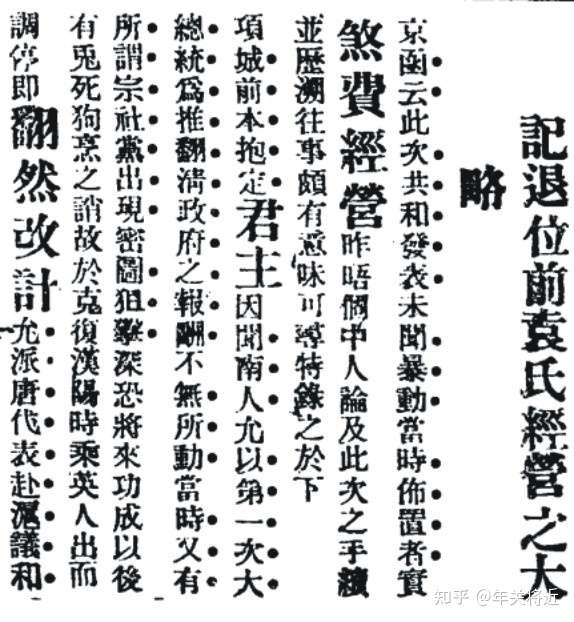 記退位前袁氏經營之大
略
京函云此次共和發表未聞暴動當時佈置者實
煞費經營昨晤個中人論及此次之手續
並歷溯往事頗有意味可尋特錄之於下
項城前本抱定君主因聞南人允以第一次大
總統爲推翻淸政府之報酬不無所動當時又有
所謂宗社黨出現密圖狙擊深恐將來功成以後
有兎死狗烹之誚故於克復漢陽時乘英人出而
調停即翻然改計允派唐代表赴滬議和
知乎 @年关将近